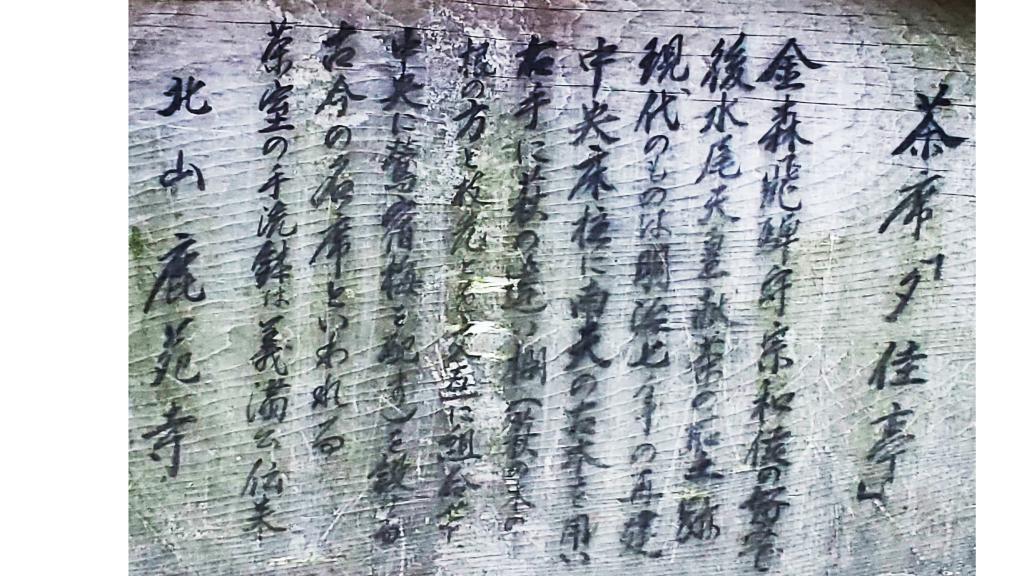 茶席「夕佳亭」
金森飛騨守宗和侯の好
後水尾天皇献茶の
現代のものは明治七年の再建
中央床柱に南天の古木を用い
右手に萩の違い棚(萩の
枝の方と枝元とを交互に組合せ
中央に鶯宿梅を配す)を設ける
古今の名席といわれる
茶室の手洗鉢は義満公伝来
北山鹿苑寺